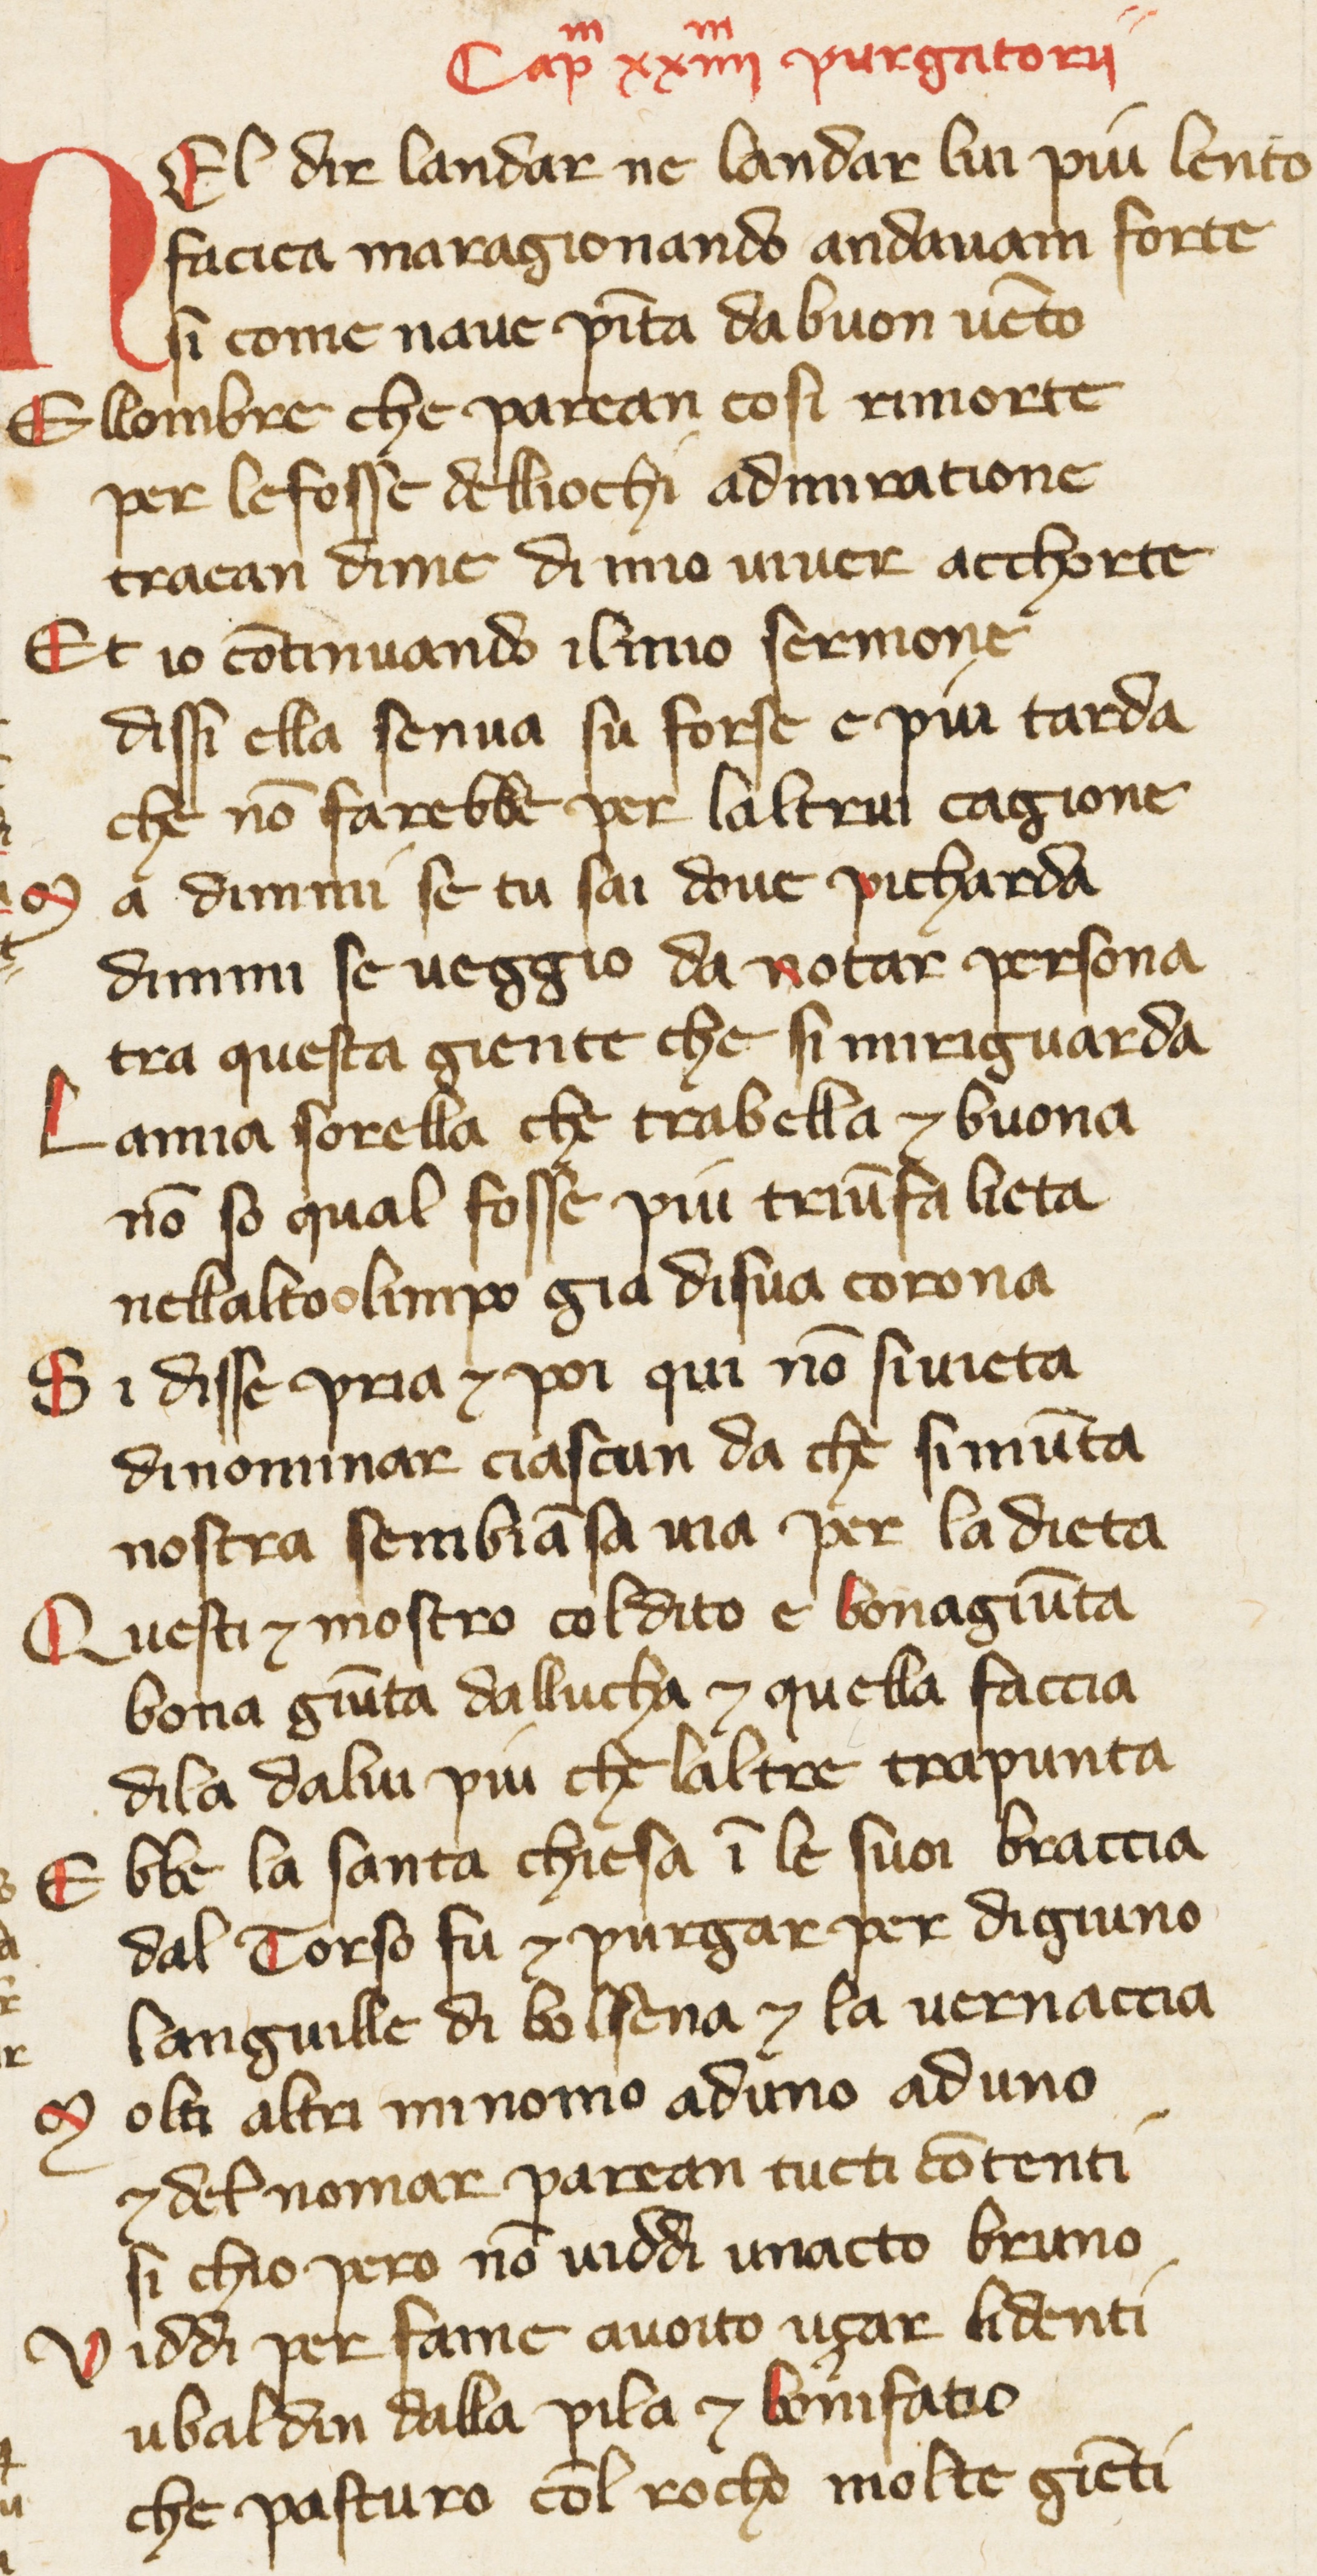 Capm xxiiiim purgatorii
NEl dir landar ne landar lui piu lento
facica maragionando andauam forte
si come naue pīta da buon uēto
Ellombre che parean cosi rimorte
per lefosse delliochi admiratione
traean dime di mio uiuer acchorte
Et io cōtinuando ilmio sermone
dissi ella senua su forse e piu tarda
che nō farebbe per laltrui cagione
Ma dimmi se tu sai doue picharda
dimmi se ueggio da notar persona
tra questa giente che si miriguarda
Lamia sorella che trabella ⁊ buona
nō so qual fosse piu triūfa lieta
nellalto olimpo gia disua corona
Si disse pria ⁊ poi qui nō siuieta
dinominar ciascun da che simūta
nostra sembiāsa uia per la dieta
Questi ⁊ mostro coldito e bonagiūta
bona giūta dallucha ⁊ quella faccia
dila dalui piu che laltre trapunta
Ebbe la santa chiesa ī le suoi braccia
dal Torso fu ⁊ purgar per digiuno
languille di bolsena ⁊ la uernaccia
Molti altri minomo aduno aduno
⁊ del nomar parean tucti cōtenti
si chio pero nō uiddi unacto bruno
Viddi per fame auoito uçar lidenti
ubaldin dalla pila ⁊ bonifatio
che pasturo cōl rocho molte giēti